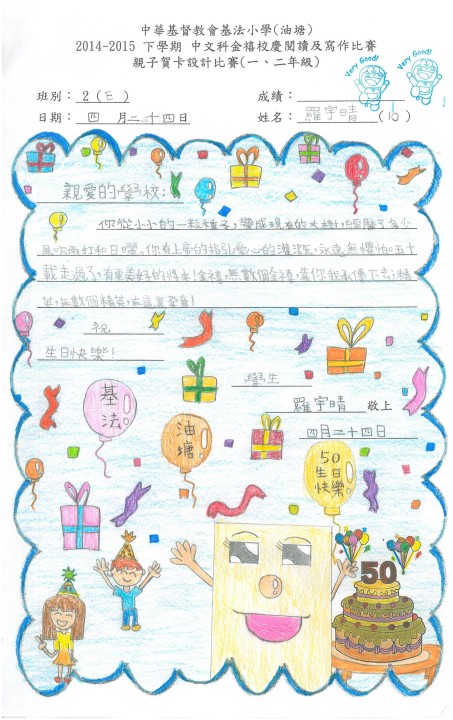 中華基督教會基法小學(油塘)
2014-2015 下學期 中文科金禧校慶閱讀及寫作比賽
親子賀卡設計比賽(一、二年級)
Very Good!
Very Good!
班別：2(E) 成績：
日期：四 月二十四日 姓名：羅宇晴(16)
親愛的學校：
你從小小的一粒種子，變成現在的大樹，經歷了多少
風吹雨打和日曬。你有上帝的指引，愛心的灌溉，永遠無懼怕。五十
載走過了，有更美好的將來！金禧，無數個金禧，
無數個精英，在這裏孕育！
祝
生日快樂！
學生
羅宇晴 敬上
四月二十四日
基法
油塘
50
生日
快樂
50